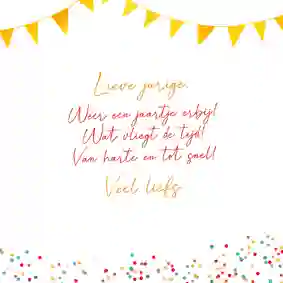 Lieve jarige,
Weer een jaartje erbij!
Wat vliegt de tijd!
Van harte en tot snel!
Veel liefs